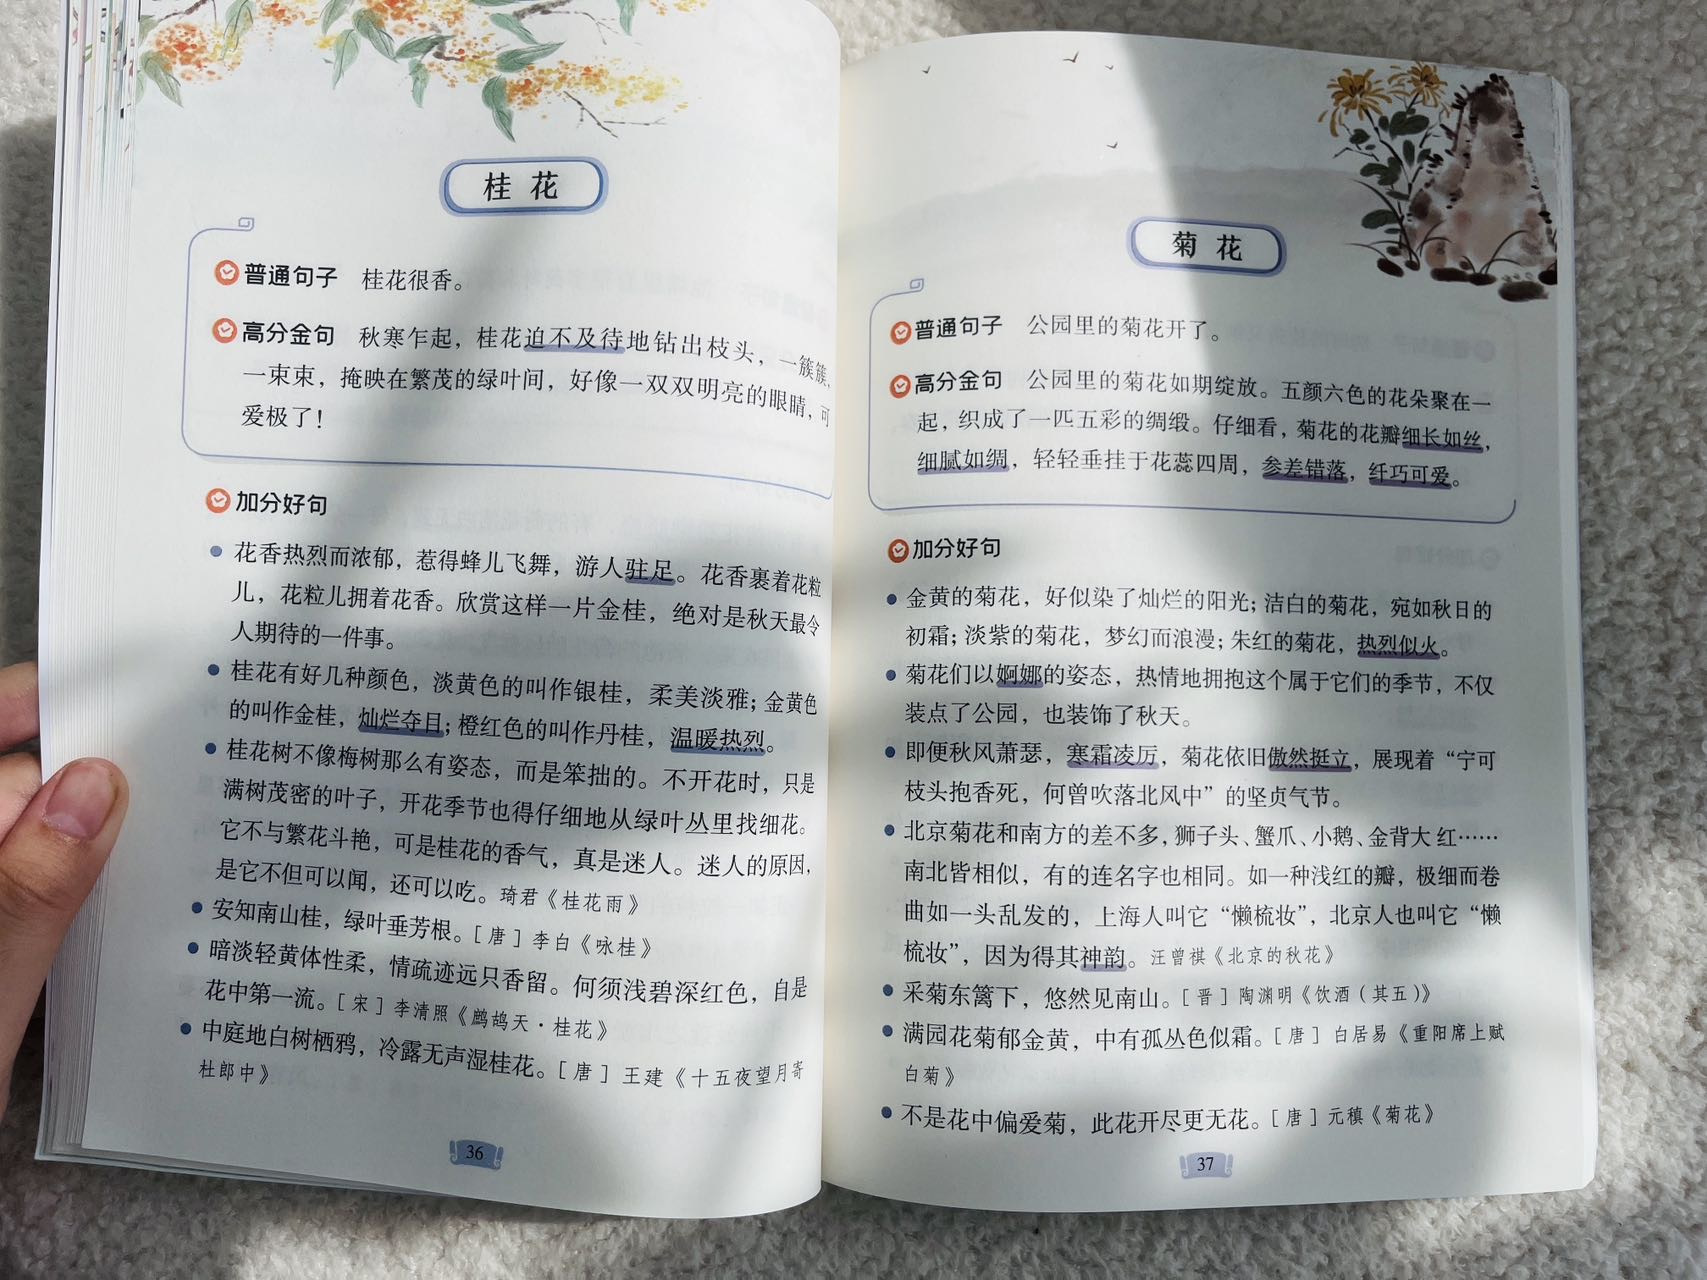 桂花
普通句子 桂花很香。
高分金句 秋寒乍起，桂花迫不及待地钻出枝头，一簇簇，
一束束，掩映在繁茂的绿叶间，好像一双双明亮的眼睛，可
爱极了！
加分好句
花香热烈而浓郁，惹得蜂儿飞舞，游人驻足。花香裹着花粒
儿，花粒儿拥着花香。欣赏这样一片金桂，绝对是秋天最令
人期待的一件事。
桂花有好几种颜色，淡黄色的叫作银桂，柔美淡雅；金黄色
的叫作金桂，灿烂夺目；橙红色的叫作丹桂，温暖热烈。
桂花树不像梅树那么有姿态，而是笨拙的。不开花时，只是
满树茂密的叶子，开花季节也得仔细地从绿叶丛里找细花。
它不与繁花斗艳，可是桂花的香气，真是迷人。迷人的原因，
是它不但可以闻，还可以吃。琦君《桂花雨》
安知南山桂，绿叶垂芳根。［唐］李白《咏桂》
暗淡轻黄体性柔，情疏迹远只香留。何须浅碧深红色，自是
花中第一流。［宋］李清照《鹧鸪天·桂花》
中庭地白树栖鸦，冷露无声湿桂花。［唐］王建《十五夜望月寄
杜郎中》
36
菊花
普通句子 公园里的菊花开了。
高分金句 公园里的菊花如期绽放。五颜六色的花朵聚在一
起，织成了一匹五彩的绸缎。仔细看，菊花的花瓣细长如丝，
细腻如绸，轻轻垂挂于花蕊四周，参差错落，纤巧可爱。
加分好句
金黄的菊花，好似染了灿烂的阳光；洁白的菊花，宛如秋日的
初霜；淡紫的菊花，梦幻而浪漫；朱红的菊花，热烈似火。
菊花们以婀娜的姿态，热情地拥抱这个属于它们的季节，不仅
装点了公园，也装饰了秋天。
即便秋风萧瑟，寒霜凌厉，菊花依旧傲然挺立，展现着“宁可
枝头抱香死，何曾吹落北风中”的坚贞气节。
北京菊花和南方的差不多，狮子头、蟹爪、小鹅、金背大红……
南北皆相似，有的连名字也相同。如一种浅红的瓣，极细而卷
曲如一头乱发的，上海人叫它“懒梳妆”，北京人也叫它“懒
梳妆”，因为得其神韵。汪曾祺《北京的秋花》
采菊东篱下，悠然见南山。［晋］陶渊明《饮酒（其五）》
满园花菊郁金黄，中有孤丛色似霜。［唐］白居易《重阳席上赋
白菊》
不是花中偏爱菊，此花开尽更无花。［唐］元稹《菊花》
37